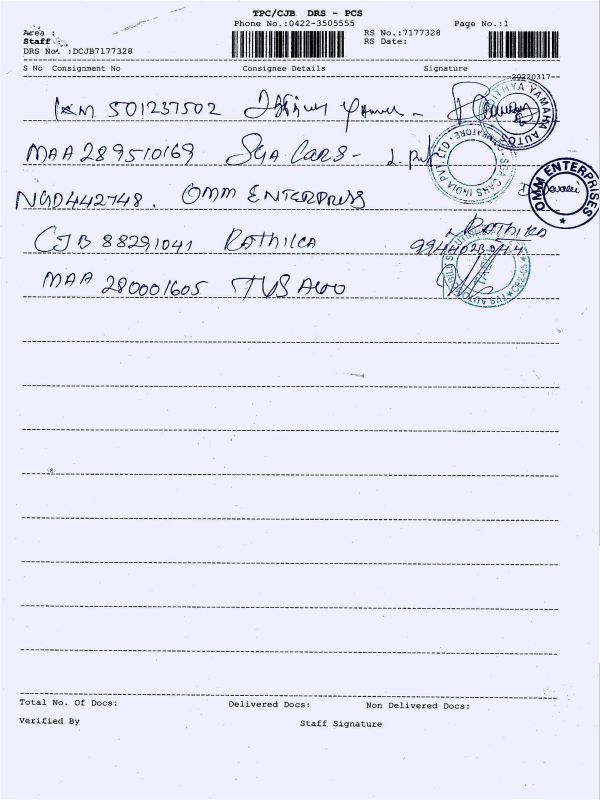 TPC/CJB DRS - PCS
Phone No.:0422-3505555 Page No.:1
Area :
Staff
RS No.:7177328
DRS No. :DCJB7177328
RS Date:
S No Consignment No Consignee Details Signature
20220317
501237502
MAA 289510169 SEA CARS -
NGD442748. OMM ENTERPRISS
CJB 88291041 RATHIKA RATHIKA
MAA 280001605 TVS Auto
ADITHYA YAMAHA AUTOS
SEA CARS INDIA PVT LTD. COIMBATORE
OMM ENTERPRISES
Total No. Of Docs: Delivered Docs: Non Delivered Docs:
Verified By Staff Signature